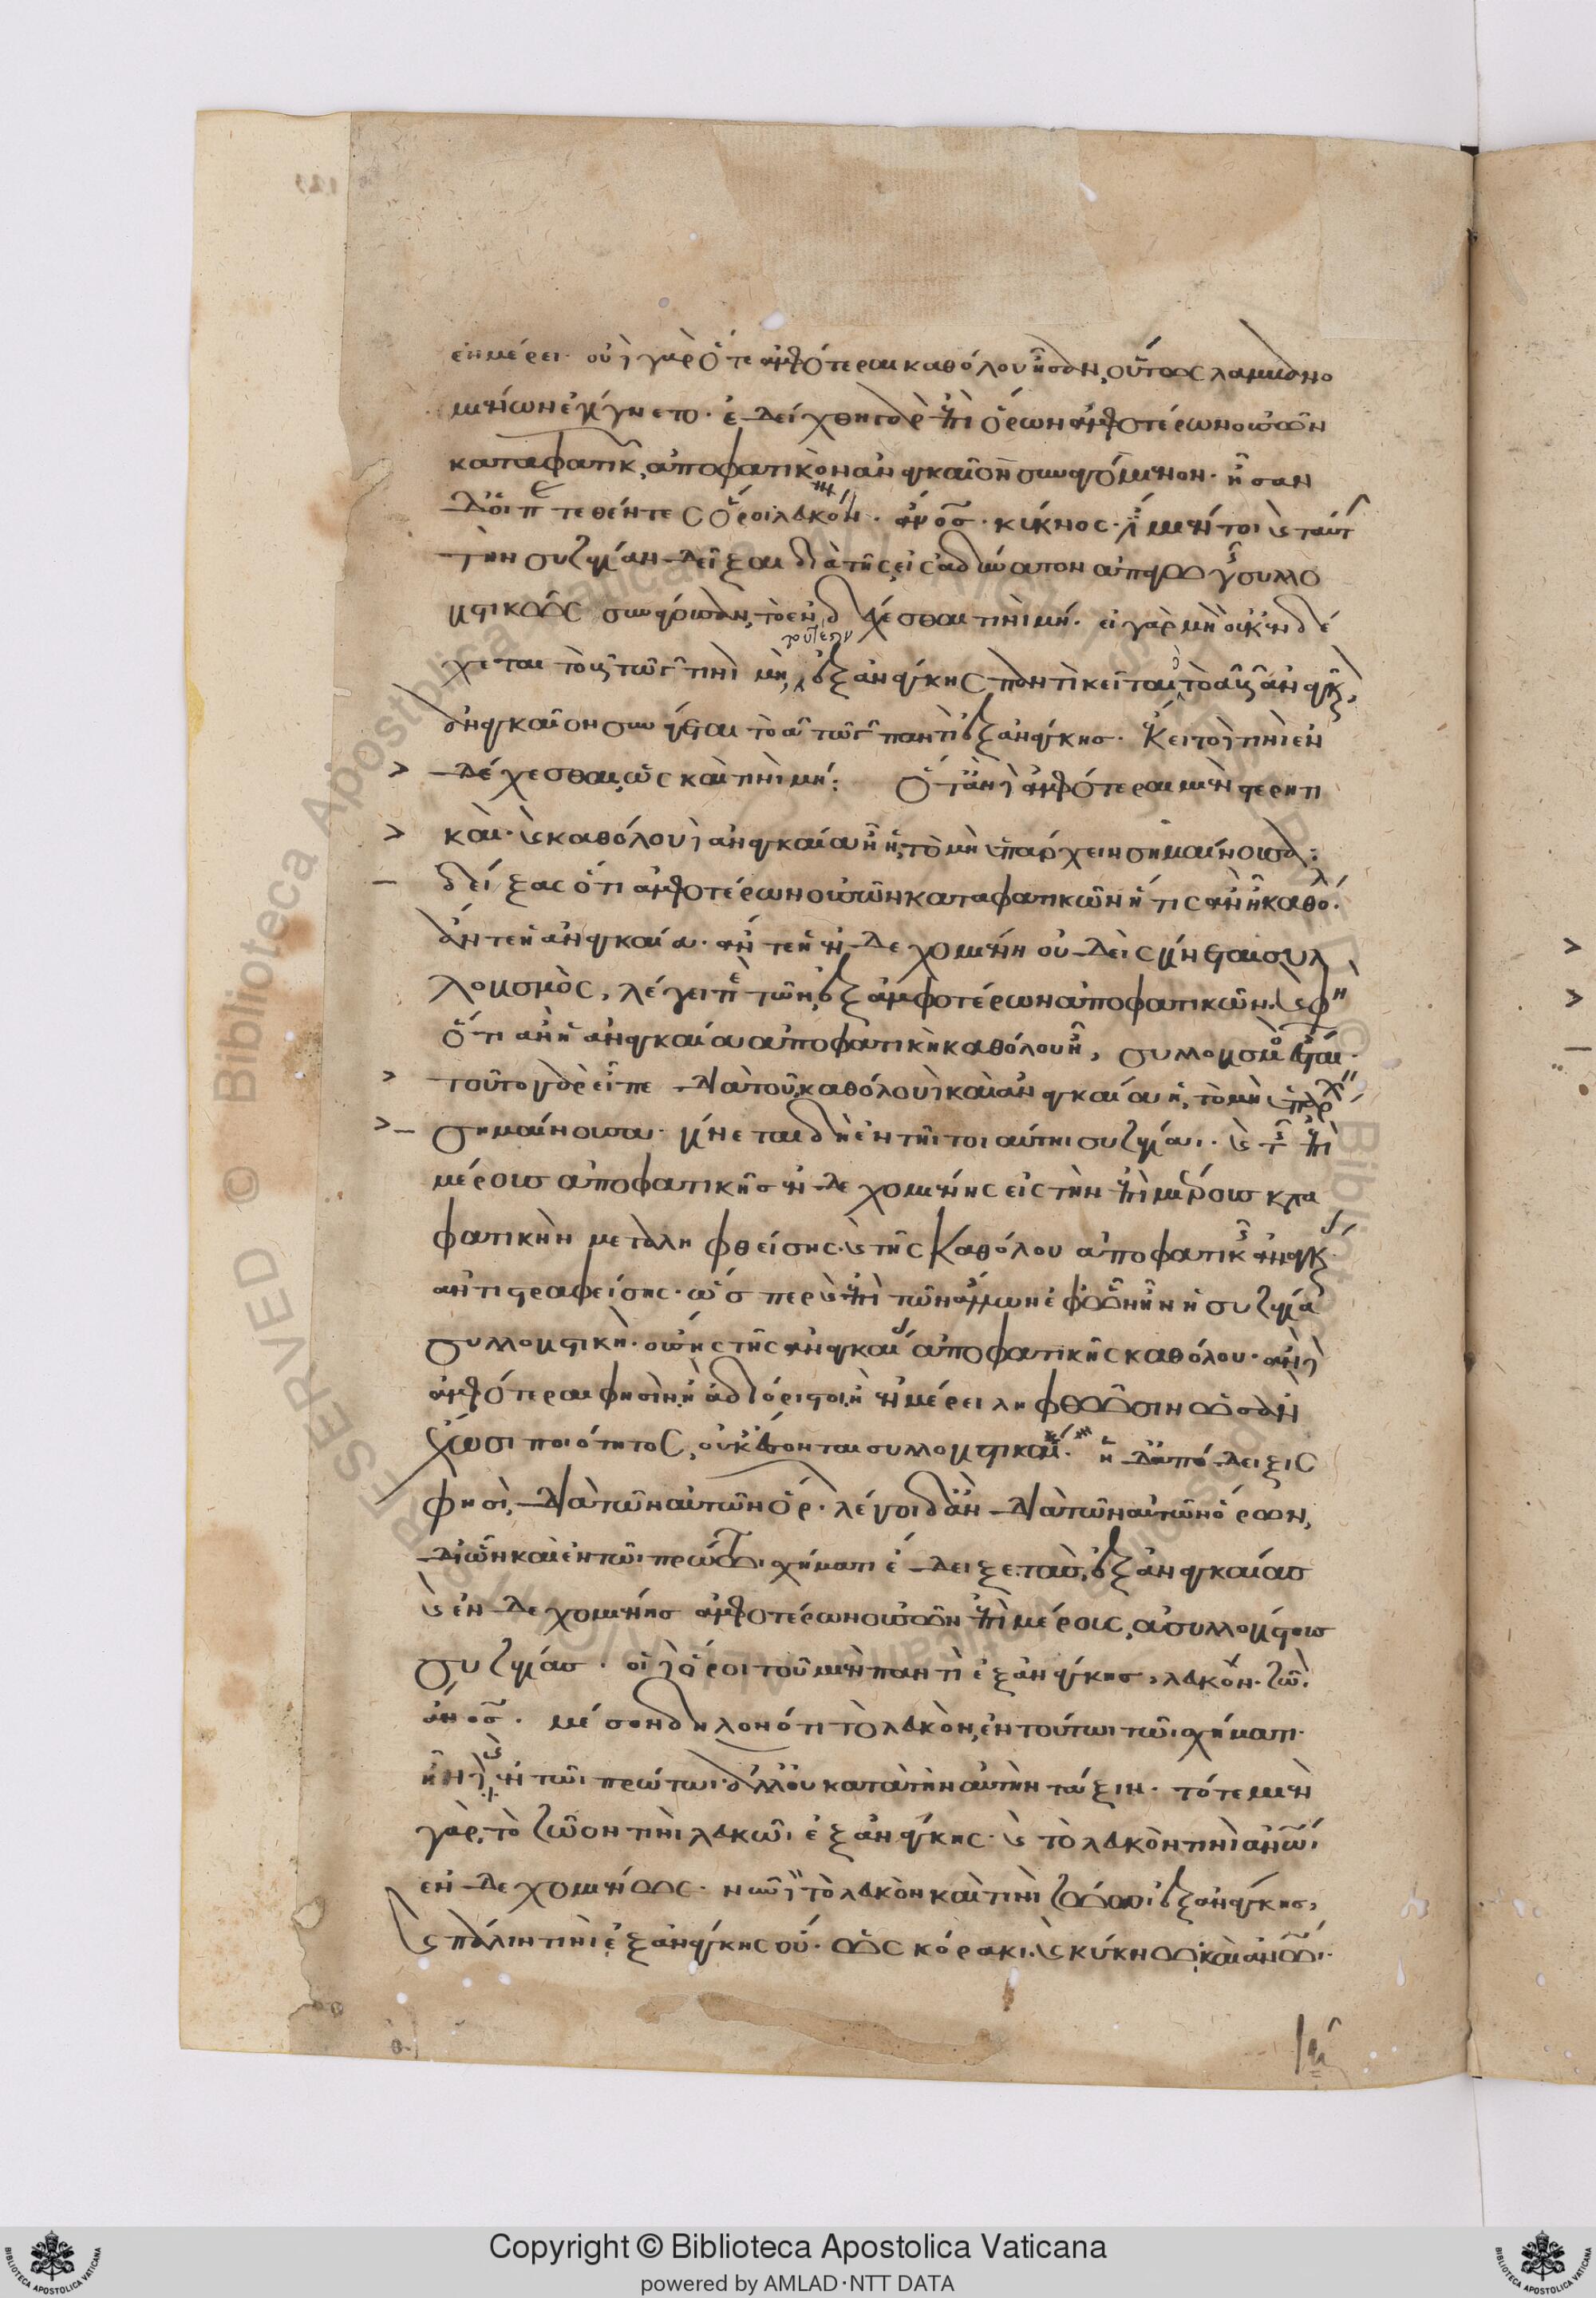 ἐν μέρει. οὐδὲ γὰρ ὅτε ἀμφότεραι καθόλου ἦσαν, οὕτως λαμβανο
μένων ἐγίγνετο. ἐδείχθη γὰρ ἐπὶ ὅρων ἀμφοτέρων οὐσῶν
καταφατικ, ἀποφατικὸν ἀναγκαῖον συναγόμενον. ἦσαν
δὲ οἱ τεθέντες ὅροι λευκόν. ἄνος. κύκνος.
τὴν συζυγίαν δεῖξαι διὰ τῆς εἰς ἀδύνατον ἀπαγωγῆς συλλο
γιστικῶς συνάγουσαν, τὸ ἐνδέχεσθαι τινὶ μή. εἰ γὰρ μὴ οὐκ ἐνδέ
χεται τὸ τῶι τινὶ μὴ, ἐξ ἀνάγκης παντὶ κεῖται
ἀναγκαῖον συνάγεται τὸ α τῶι παντὶ ἐξ ἀνάγκης. ἔκειτο δὲ τινὶ ἐν
δέχεσθαι, ὡς καὶ τινὶ μή: Ὅταν δὲ ἀμφότεραι μὲν στερητι
καὶ. καὶ καθόλου δὲ ἀναγκαία ἦ ἡ τὸ μὴ ὑπάρχειν σημαίνουσα:
δείξας ὅτι ἀμφοτέρων οὐσῶν καταφατικῶν ἥτις ἂν ἦ καθό.
ἄν τε ἡ ἀναγκαία. ἄν τε ἡ ἐνδεχομένη οὐδεὶς γίνεται συλ
λογισμὸς, λέγει περὶ τῶν ἐξ ἀμφοτέρων ἀποφατικῶν. καὶ φη
ὅτι ἂν ἡ ἀναγκαία ἀποφατικὴ καθόλου ἦ, συλλογισμὸς ἔσται.
τοῦτο γὰρ εἶπε διὰ τοῦ, καθόλου δὲ καὶ ἀναγκαία ἡ, τὸ μὴ ὑπάρχ
σημαίνουσα. γίνεται δὴ ἐν τῆι τοιαύτηι συζυγίαι. καὶ τῆς ἐπὶ
μέρους ἀποφατικῆς ἐνδεχομένης εἰς τὴν ἐπὶ μέρους κατα
φατικὴν μεταληφθείσης. καὶ τῆς καθόλου ἀποφατικῆς ἀναγκ
ἀντιστραφείσης. ὥσπερ καὶ ἐπὶ τῶν ἄλλων ἐφ' ὧν ἦν ἡ συζυγία
συλλογιστικὴ. οὔσης τῆς ἀναγκαί ἀποφατικῆς καθόλου. ἂν δὲ
ἀμφότεραι φησὶν, ἢ ἀδιόριστοι, ἢ ἐν μέρει ληφθῶσιν ὡς ἂν
ἔχωσι ποιότητος, οὐκ ἔσονται συλλογιστικαί. ἡ δὲ ἀπόδειξις
φησὶ, διὰ τῶν αὐτῶν ὅρ. λέγοι δ' ἂν διὰ τῶν αὐτῶν ὅρων,
δι' ὧν καὶ ἐν τῶι πρώτω σχήματι ἔδειξε τὰς ἐξ ἀναγκαίας
καὶ ἐνδεχομένης ἀμφοτέρων οὐσῶν ἐπὶ μέρους, ἀσυλλογίστους
συζυγίας. οἱ δὲ ὅροι τοῦ μὲν παντὶ ἐξ ἀνάγκης, λευκόν. ζῶ.
ἄνος. μέσον δηλονότι τὸ λευκὸν, ἐν τούτωι τῶι σχήματι.
ἦν δὲ καὶ ἐν τῶι πρώτωι ἀλλ' οὐ κατὰ τὴν αὐτὴν τάξιν. τότε μὲν
γὰρ, τὸ ζῶον τινὶ λευκῶι ἐξ ἀνάγκης. καὶ τὸ λευκὸν τινὶ ἀνωι
ἐνδεχομένως. νῦν δὲ τὸ λευκὸν καὶ τινὶ ζώωι ἐξ ἀνάγκης,
καὶ πάλιν τινὶ ἐξ ἀνάγκης οὔ. ὡς κόρακι. καὶ κύκνω. καὶ ἀνωι.
Copyright © Biblioteca Apostolica Vaticana
powered by AMLAD·NTT DATA